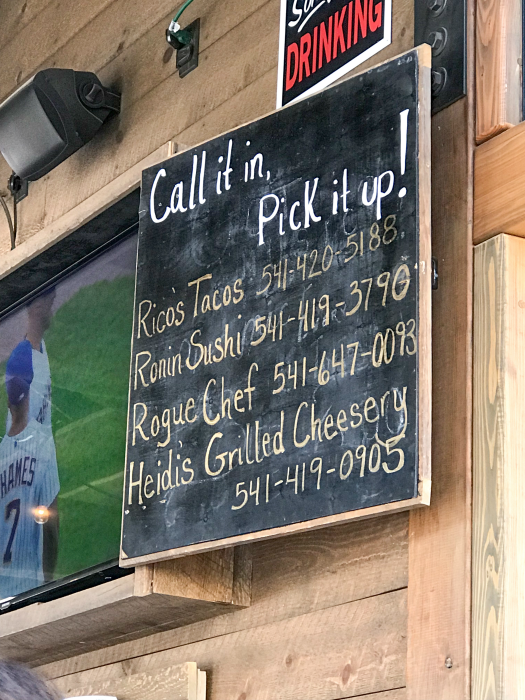 DRINKING
Call it in,
Pick it up!
Rico's Tacos 541-420-5188
Ronin Sushi 541-419-3790
Rogue Chef 541-647-0093
Heidi's Grilled Cheesery
541-419-0905
HAMES
7